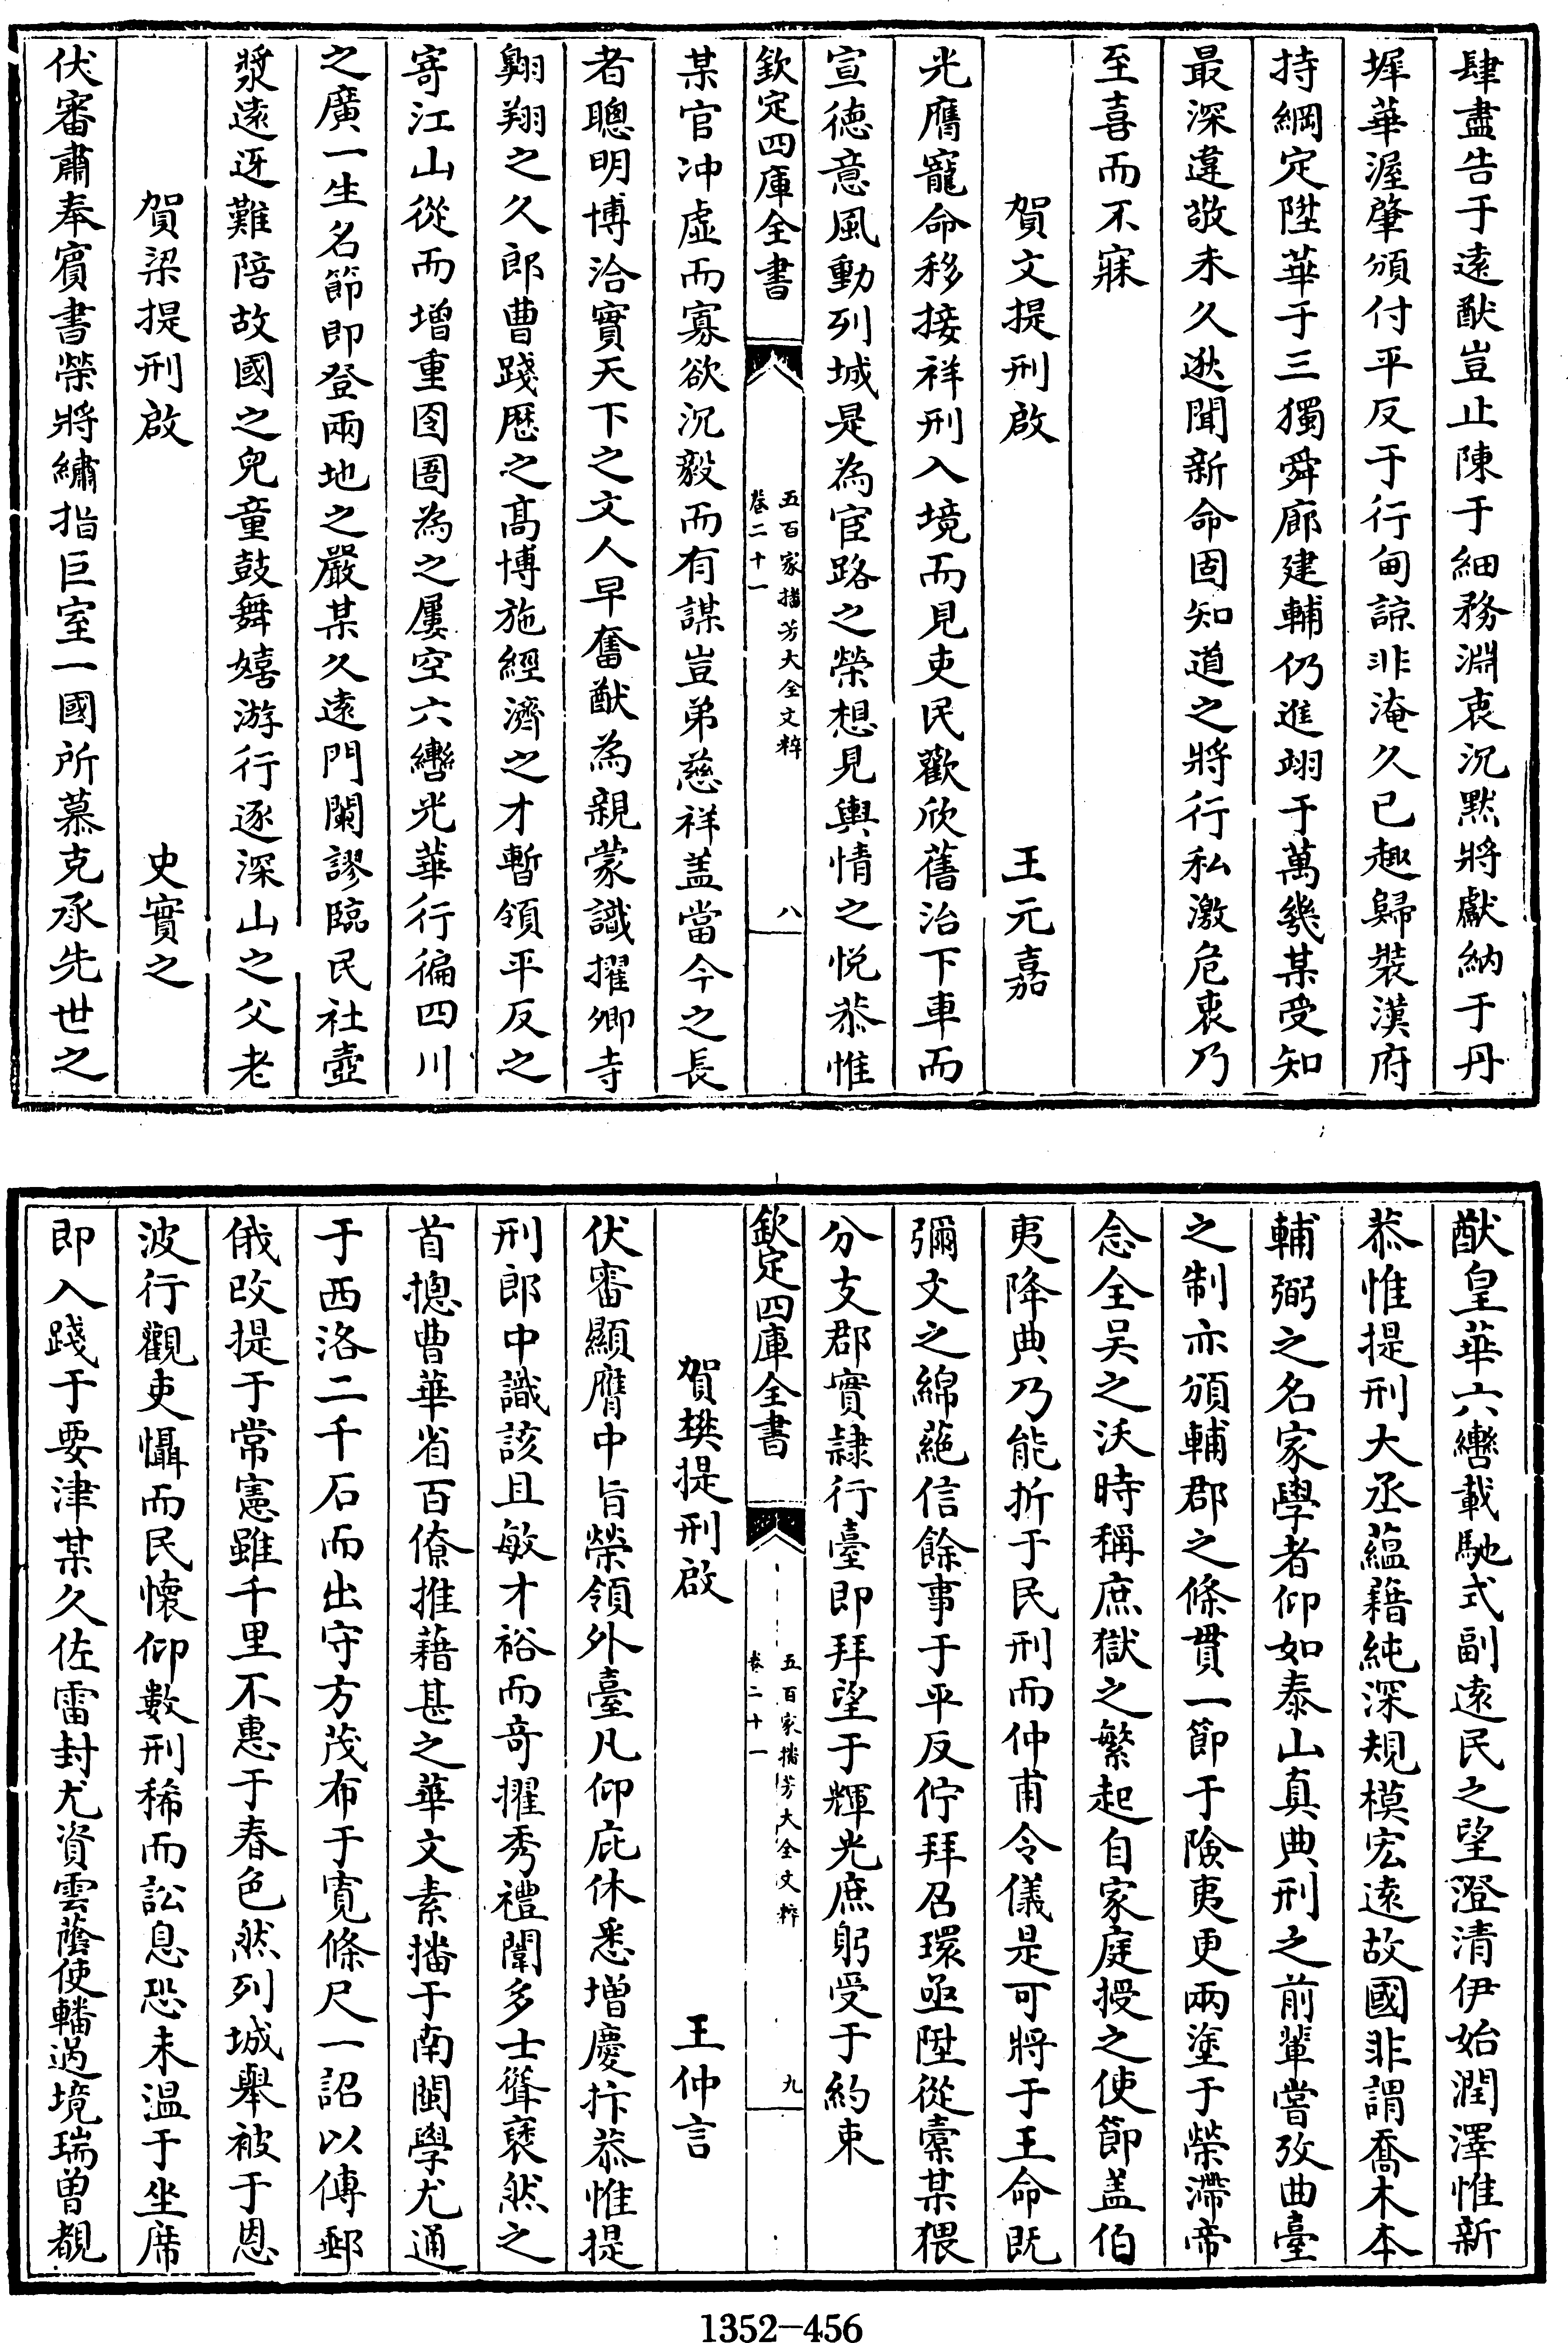 肆盡告于遠猷豈止陳于細務淵衷沉黙將獻納于丹
墀華渥肇頒付平反于行甸諒非淹久已趣歸裝漢府
持綱定陞華于三獨舜廊建輔仍進翊于萬幾某受知
最深違敬未久逖聞新命固知道之將行私激危衷乃
至喜而不寐
賀文提刑啟 王元嘉
光膺寵命移接祥刑入境而見吏民歡欣舊治下車而
宣徳意風動列城是為宦路之榮想見輿情之悦恭惟
欽定四庫全書
五百家播芳大全文粹
卷二十一
八
某官冲虛而寡欲沉毅而有謀豈弟慈祥盖當今之長
者聰明博洽實天下之文人早奮猷為親蒙識擢卿寺
翺翔之久郎曹踐歴之髙博施經濟之才暫領平反之
寄江山從而增重囹圄為之屢空六轡光華行徧四川
之廣一生名節即登兩地之嚴某久遠門闌謬臨民社壺
漿遠迓難陪故國之兒童鼓舞嬉游行逐深山之父老
賀梁提刑啟 史實之
伏審肅奉賓書榮將繡指巨室一國所慕克承先世之
猷皇華六轡載馳式副遠民之望澄清伊始潤澤惟新
恭惟提刑大丞藴藉純深規模宏遠故國非謂喬木本
輔弼之名家學者仰如泰山真典刑之前輩嘗攷曲臺
之制亦頒輔郡之條貫一節于險夷更兩塗于榮滯帝
念全吴之沃時稱庶獄之繁起自家庭授之使節盖伯
夷降典乃能折于民刑而仲甫令儀是可將于王命既
彌文之綿蕝信餘事于平反佇拜召環亟陞從橐某猥
分支郡實隷行臺即拜望于輝光庶躬受于約束
欽定四庫全書
五百家播芳大全文粹
卷二十一
九
賀樊提刑啟 王仲言
伏審顯膺中旨榮領外臺凡仰庇休悉增慶抃恭惟提
刑郎中識該且敏才裕而竒擢秀禮闈多士聳褎然之
首摠曹華省百僚推藉甚之華文素播于南閩學尤通
于西洛二千石而出守方茂布于寛條尺一詔以傳郵
俄改提于常憲雖千里不惠于春色然列城舉被于恩
波行觀吏懾而民懐仰數刑稀而訟息恐未温于坐席
即入踐于要津某久佐雷封尤資雲蔭使轓過境瑞曽覩
1352-456